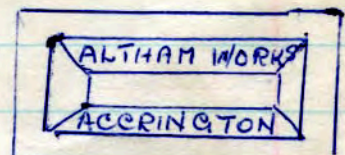 ALTHAM WORKS
ACCRINGTON